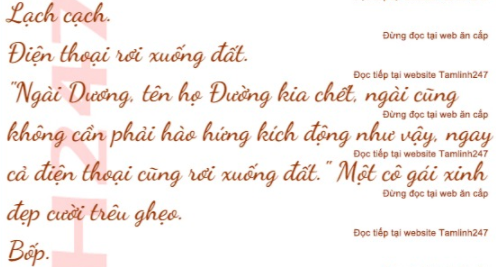 Lạch cạch.
Đừng đọc tại web ăn cắp
Điện thoại rơi xuống đất.
Đọc tiếp tại website Tamlinh247
"Ngài Dương, tên họ Đường kia chết, ngài cũng
Đừng đọc tại web ăn cắp
không cần phải hào hứng kích động như vậy, ngay
Đọc tiếp tại website Tamlinh247
cả điện thoại cũng rơi xuống đất." Một cô gái xinh
Đừng đọc tại web ăn cắp
đẹp cười trêu ghẹo.
Đọc tiếp tại website Tamlinh247
Bốp.
H247